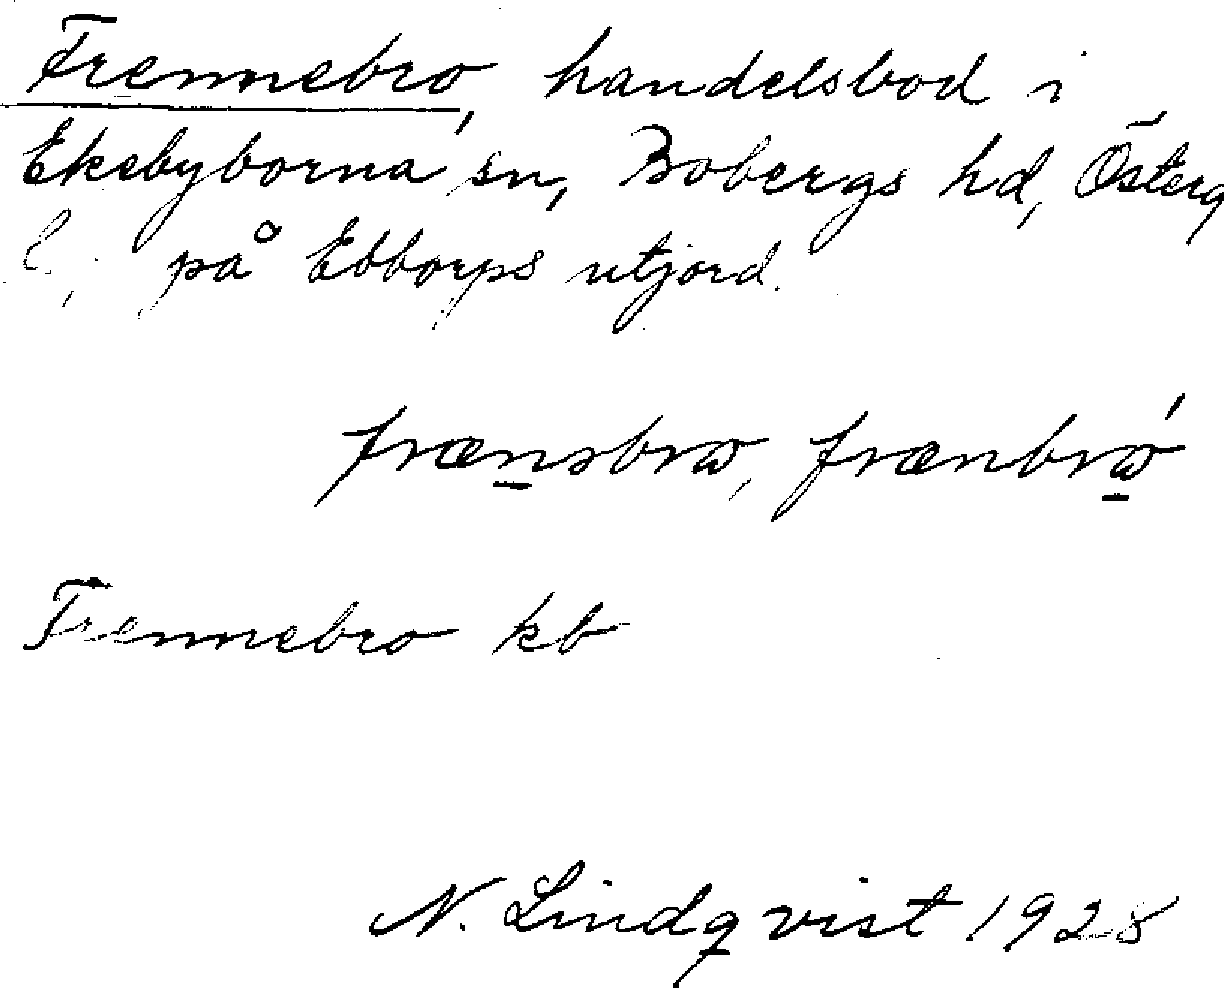 Frennebro, handelsbod i
Ekebyborna sn, Bobergs hd, Österg
l., på Ebborps utjord.
frænsbrω, frænbrώ
Frennebro kb
N. Lindqvist 1928